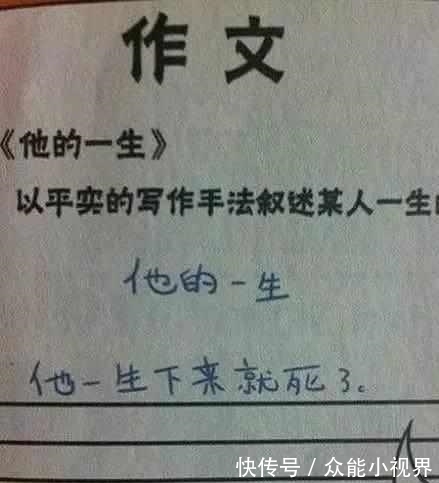 作文
《他的一生》
以平实的写作手法叙述某人一生
他的一生
他一生下来就死了。
快传号/众能小视界